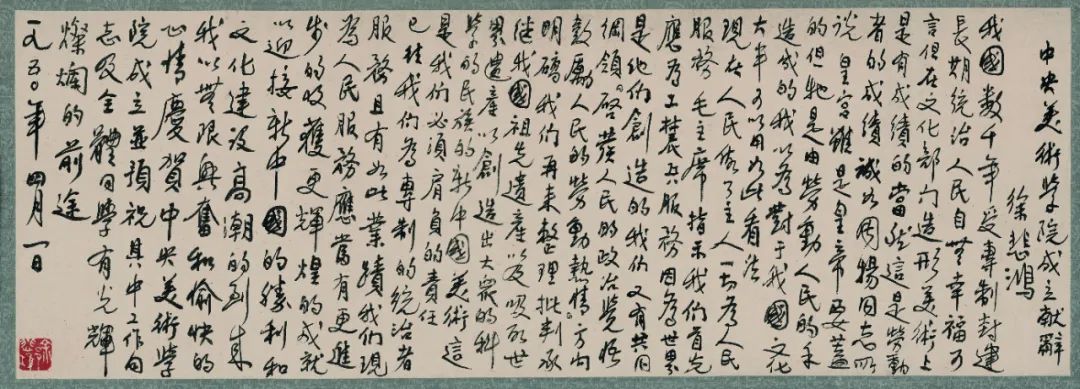 中央美術学院成立献辭
徐悲鴻
我國數千年受專制封建
長期統治人民自無幸福可
言但在文化部门造形美術上
是有成绩的當然這是劳動
者的成績誠如周揚同志所
说皇宫雖是皇帝要蓋
的但牠是由劳動人民的手
造成的我以為對于我國文化
大半可以用如此看法
現在人民做了主人一切為人民
服務毛主席指示我们首先
應为工農兵服務因為世界
是他们創造的我们又有共同
綱領啓發人民的政治覺悟
鼓勵人民的勞動熱情方向
明確我们再来整理批判承
继我國祖先遺產以及吸取世
界遺產以創造出大眾的科
學的民族的新中國美術這
是我们必須肩負的責任
已往我们為專制的統治者
服務且有如此業蹟我们現
為人民服務應當有更進
步的收獲更輝煌的成就
以迎接新中國的勝利和
文化建設高潮的到来
我以無限興奮和偷快的
心情慶賀中央美術学
院成立並預祝其中工作同
志及全體同學有光輝
燦爛的前途
一九五〇年四月一日